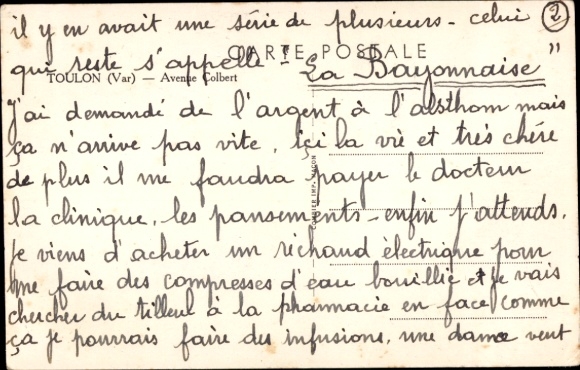 il y en avait une série de plusieurs - celui
2
CARTE POSTALE
qui reste s'appelle : "La Bayonnaise"
TOULON (Var) — Avenue Colbert
j'ai demandé de l'argent à l'alsthom mais
ça n'arrive pas vite, içi la vie et très chére
de plus il me faudra payer le docteur
la clinique, les pansements - enfin j'attends.
je viens d'acheter un réchaud électrique pour
me faire des compresses d'eau bouillie et je vais
chercher du tilleul à la pharmacie en face comme
ça je pourrais faire des infusions, une dame veut